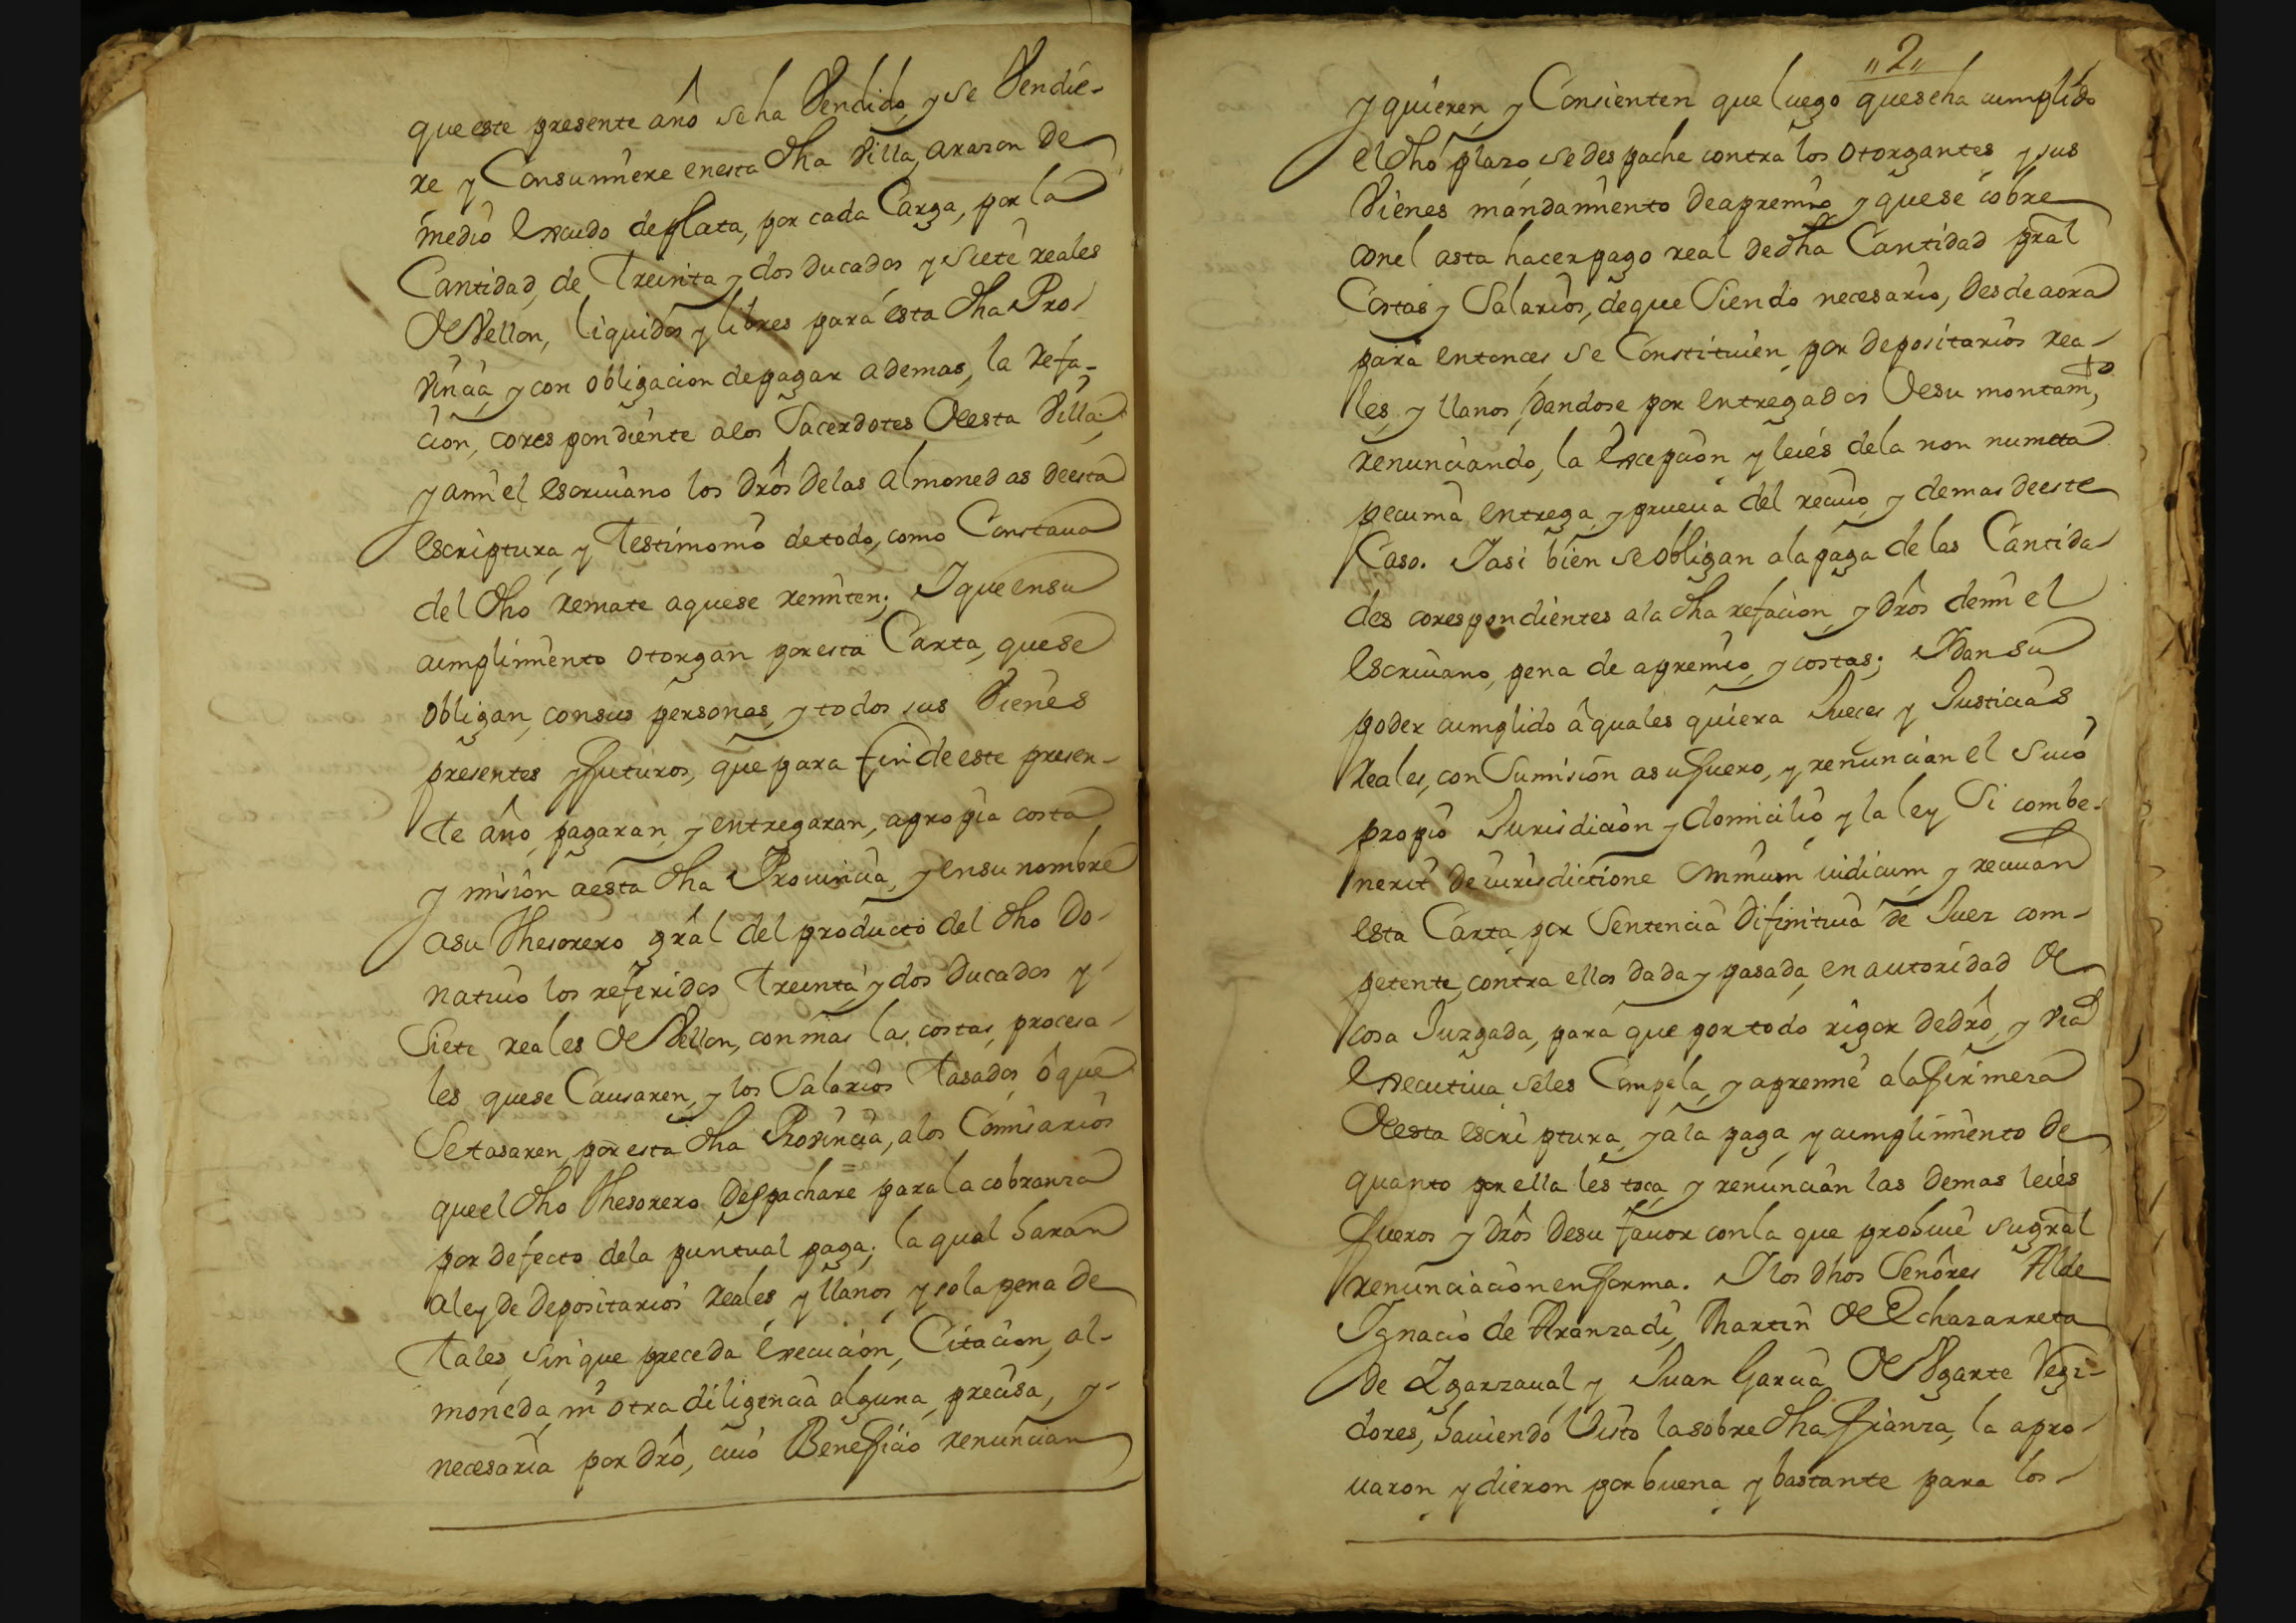 que este presente año se ha Vendido, y se Vendie-
re y Consumiere en esta dha Villa, a razon de
medio Escudo de plata, por cada Carga, por la
Cantidad, de Treinta y dos Ducados y Siete reales
de Vellon, liquidos y libres para esta dha Pro-
vincia, y con obligacion de pagar ademas, la refa-
cion, corespondiente a los Sacerdotes de esta Villa,
y a mi el escriuano los dros de las almonedas de esta
escriptura, y Testimonio de todo, como Constaua
del dho remate a que se remiten; Y que en su
cumplimiento otorgan por esta Carta, que se
obligan, con sus personas, y todos sus Vienes
presentes y futuros, que para fin de este presen-
te año, pagaran, y entregaran, a propia costa
y mision a esta dha Prouincia, y en su nombre
a su Thesorero gral del producto del dho Do-
natiuo los referidos Treinta y dos Ducados y
Siete reales de Vellon, con mas las costas, procesa-
les que se Causaren, y los Salarios Tasados, ó que
Se tasaren, por esta dha Provincia, a los Comisarios
que el dho Thesorero Despachare para la cobranza
por defecto de la puntual paga; la qual haran
a ley de Depositarios reales, y llanos, y so la pena de
Tales, sin que preceda Execucion, Citacion, al-
moneda, ni otra diligencia alguna, precisa, y
necesaria por dro, cuio Beneficio renuncian
"2"
y quieren, y Consienten que luego que se ha cumplido
el dho plazo, se despache contra los otorgantes y sus
Vienes mandamiento de apremio, y que se cobre
con el asta hacer pago real de dha Cantidad pral
Costas y Salarios, de que Siendo necesario, Desde aora
para entonces, se Constituien, por depositarios rea-
les, y llanos, dandose por entregados de su montamto,
renunciando, la Excepcion y leies de la non numta
pecunia, entrega, y prueua del reciuo, y demas de este
Caso. Y asi bien se obligan a la paga de las Cantida-
des corespondientes a la dha refacion, y dros de mi el
escriuano, pena de apremio, y costas; Y dan su
poder cumplido á quales quiera Jueces y Justicias
Reales, con Sumision a su fuero, y renuncian el suio
propio Jurisdicion y domicilio, y la ley Si combe-
nerit de iurisdictione Omnium iudicum, y reciuan
esta Carta, por Sentencia Difinitiua de Juez com-
petente, contra ellos dada y pasada, en autoridad de
cosa Juzgada, para que por todo rigor de dro, y via
Executiua, se les Compela, y apremie a la firmeza
de esta escriptura, y a la paga, y cumplimiento de
quanto por ella les toca, y renuncian las demas leies
fueros y dros de su fauor con la que prohiue su gral
renunciacion en forma. Y los dhos Señores Alde
Ignacio de Aranzadi, Martin de Echazarreta
de Lgarzaual, y Juan Garcia de Vgarte Regi-
dores, hauiendo Visto la sobre dha fianza, la apro-
uaron y dieron por buena y bastante para los-